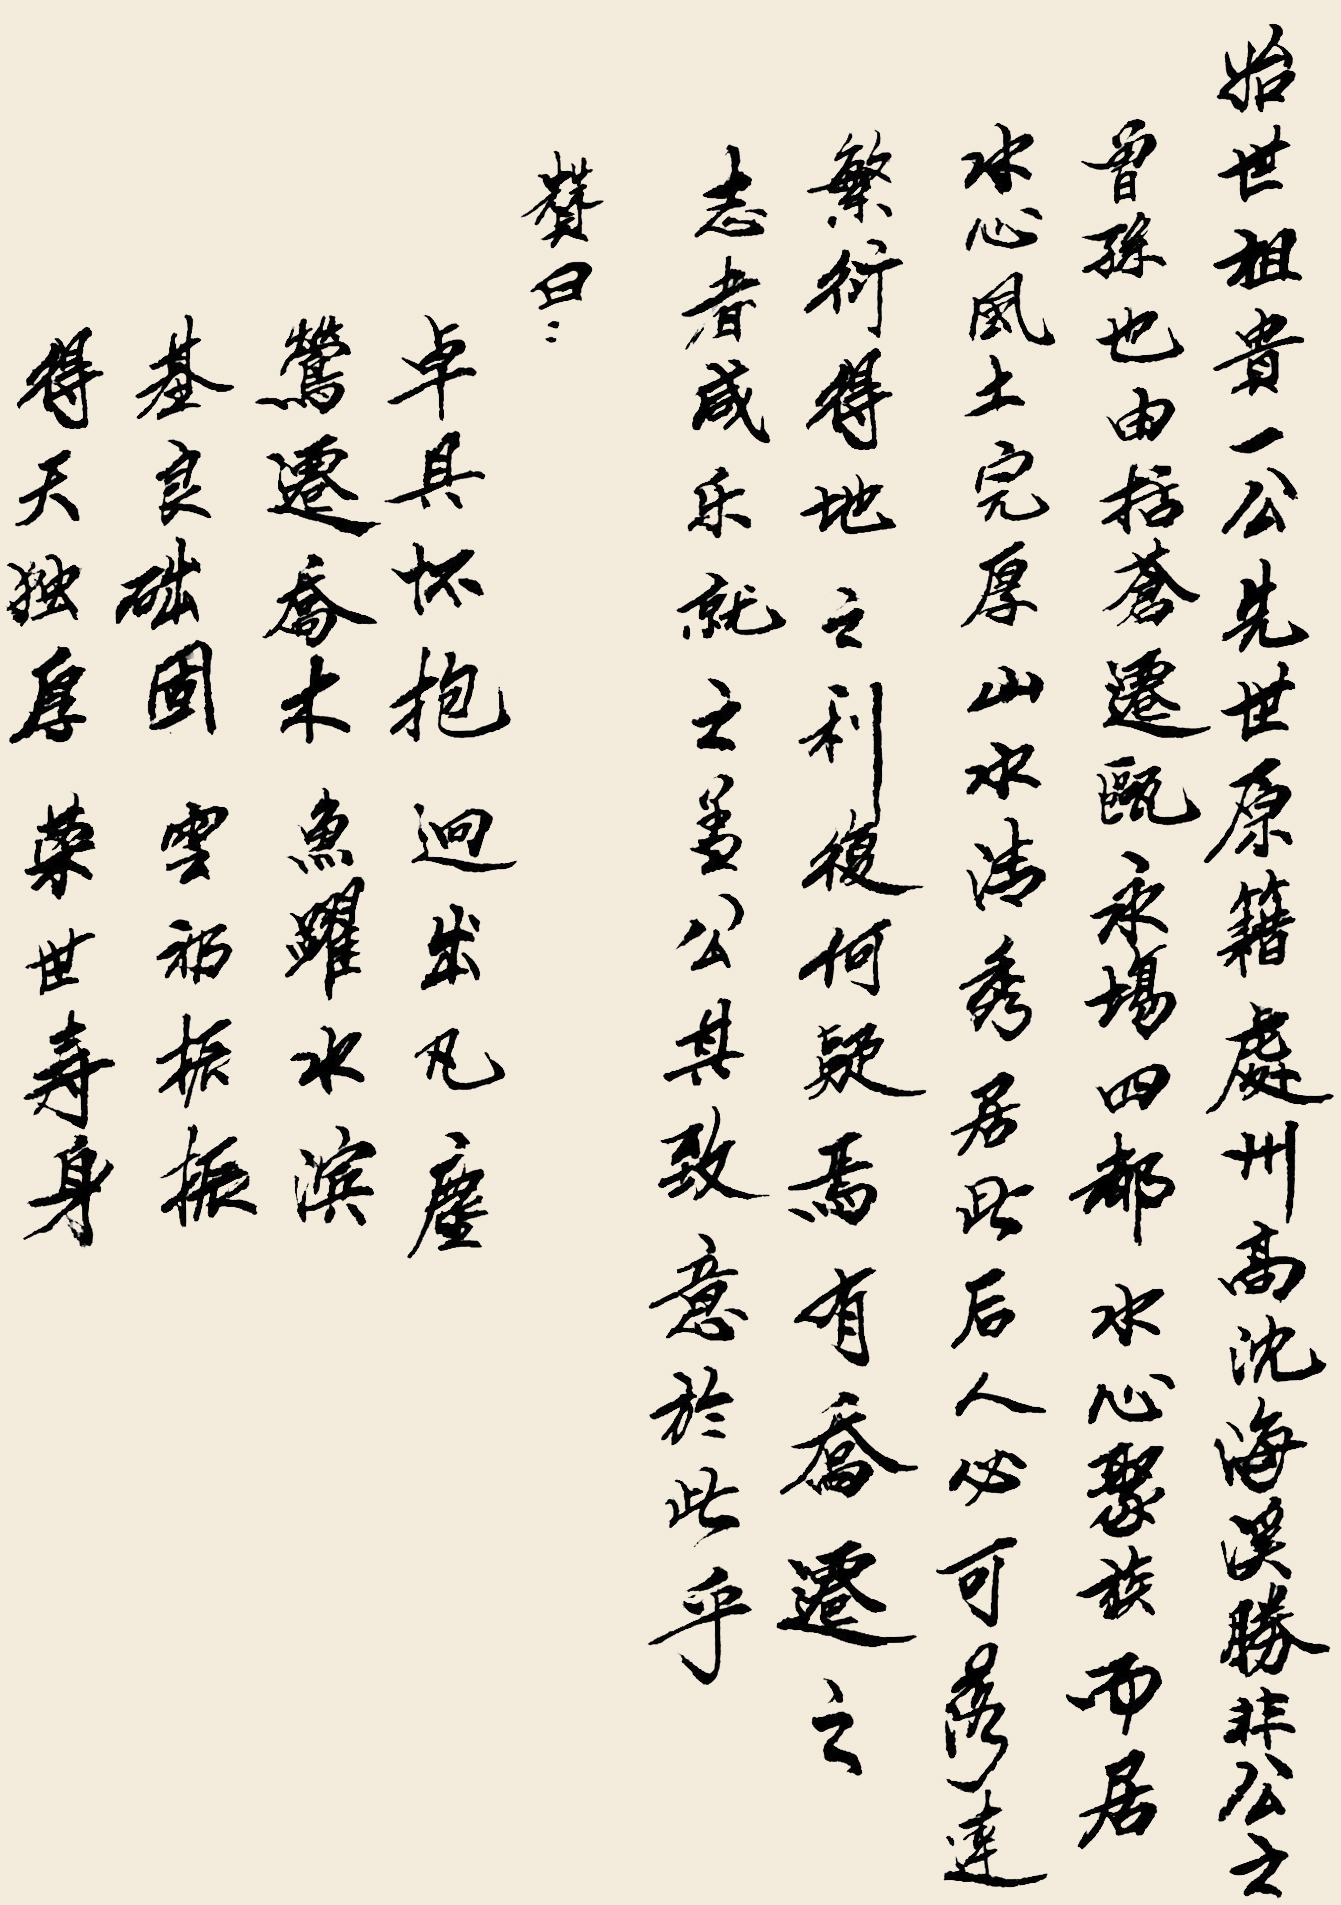 始世祖貴一公先世原籍處州高沈海溪勝非公之
曾孫也由括蒼遷甌永場四都水心聚族而居
水心風土完厚山水清秀居此后人必可落達
繁衍得地之利復何疑焉有喬遷之
志者咸乐就之盖公其致意於此乎
贊曰:
卓具怀抱迥出凡塵
鶯遷喬木魚躍水滨
基良础固雲礽振振
得天独厚荣世寿身